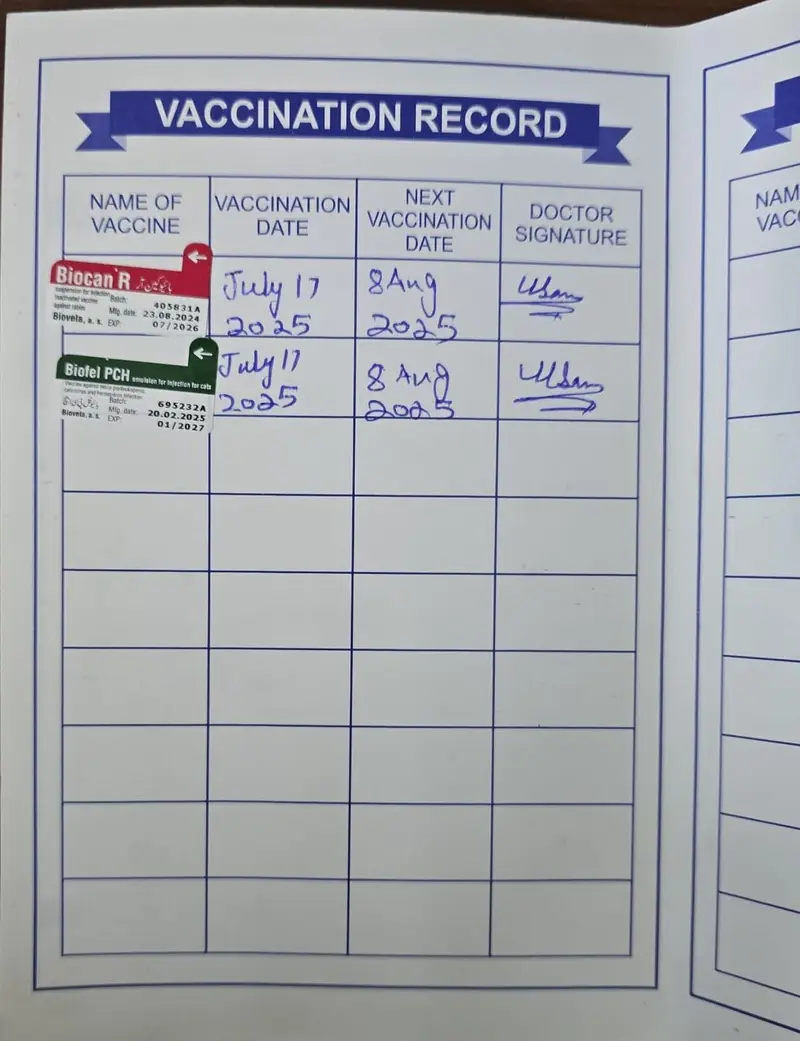 VACCINATION RECORD
NAME OF
VACCINE
VACCINATION
DATE
NEXT
VACCINATION
DATE
DOCTOR
SIGNATURE
NAM
VACC
Biocan R
suspension for injection
Inactivated vaccine
against rabies
Batch: 405831A
Mfg. date: 23.08.2024
Bioveta, a. s. EXP: 07/2026
July 17
2025
8 Aug
2025
Biofel PCH emulsion for injection for cats
Batch: 695232A
Mfg. date: 20.02.2025
Bioveta, a. s. EXP: 01/2027
July 17
2025
8 Aug
2025